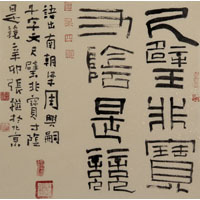 尺璧非寶
寸陰是競
語出南朝梁周興嗣
千字文尺璧非寶寸陰
是競辛卯張於北京